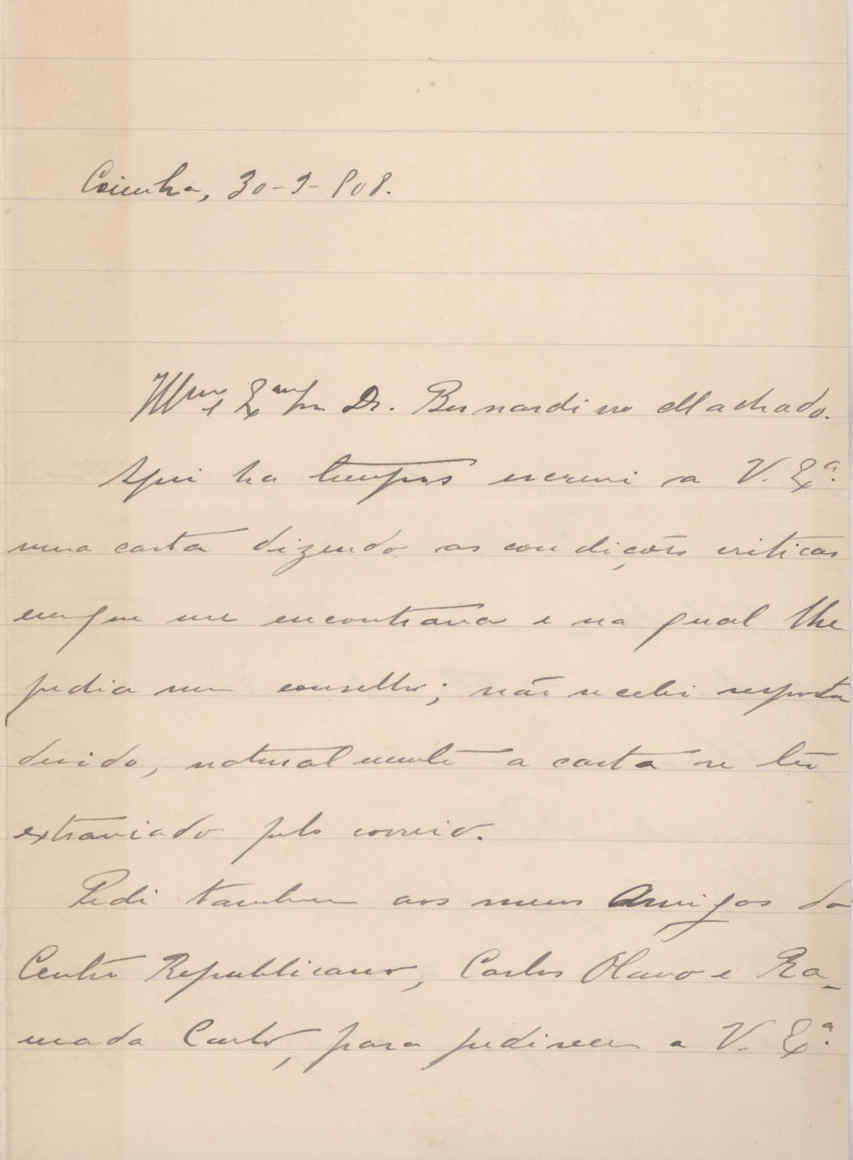 Coimbra, 30-9-908.
Illmo e Exmo Sr. Dr. Bernardino Machado.
Aqui ha tempos escrevi a V. Exª.
uma carta dizendo as condições criticas
em que me encontrava e na qual lhe
pedia um conselho; não recebi resposta
devido, naturalmente a carta se ter
extraviado pelo correio.
Pedi tambem aos meus Amigos do
Centro Republicano, Carlos Olavo e Ra-
mada Curto, para pedirem a V. Exª.